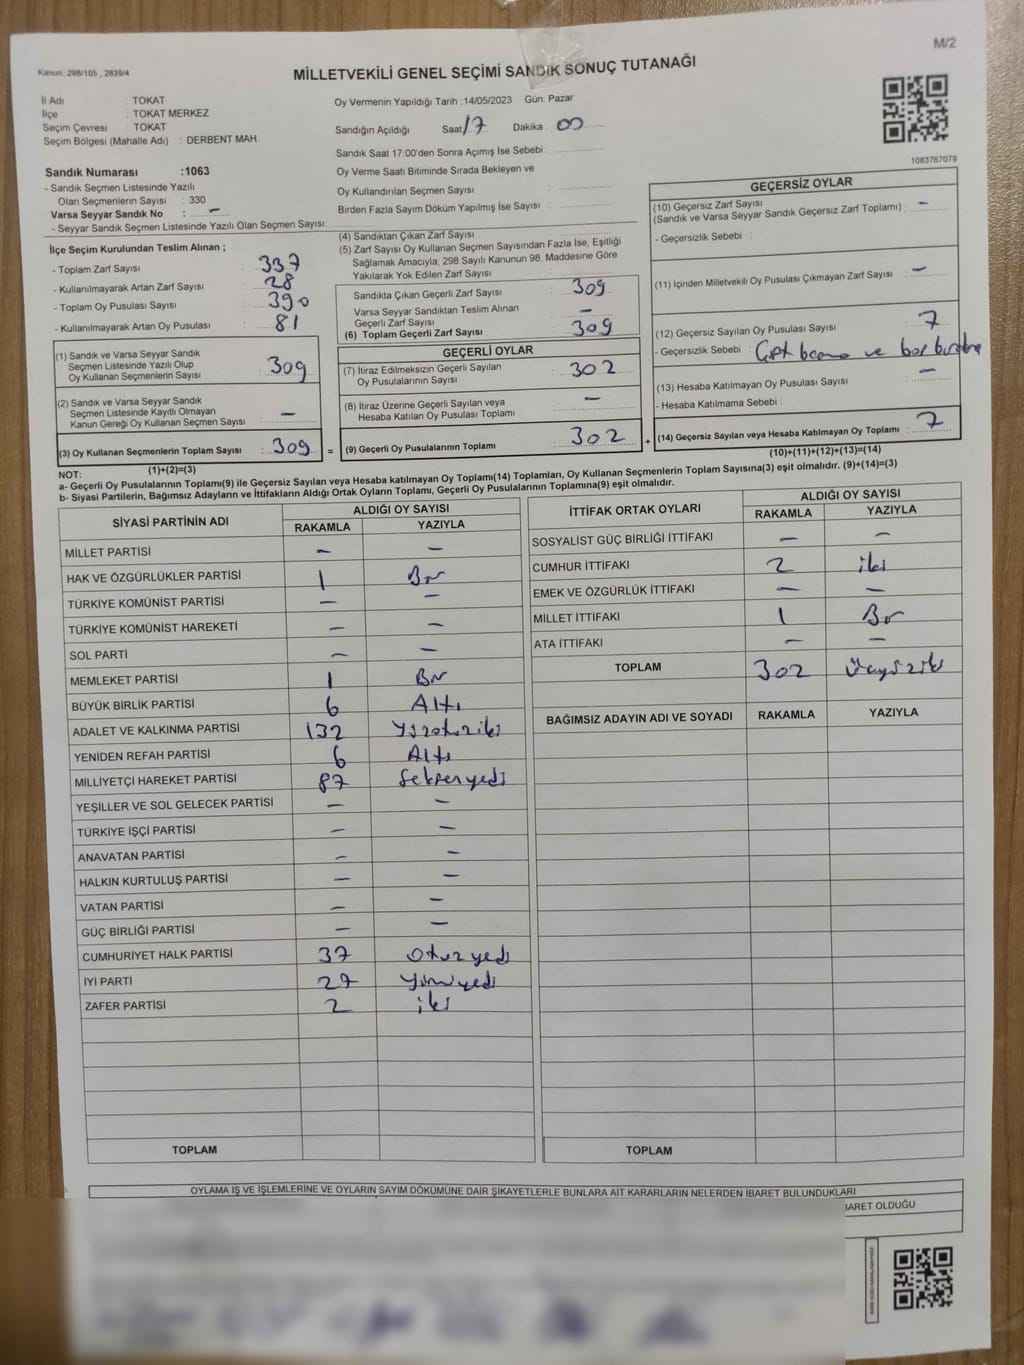 M/2
Kanun: 298/105 , 2839/4
MİLLETVEKİLİ GENEL SEÇİMİ SANDIK SONUÇ TUTANAĞI
İl Adı : TOKAT
İlçe : TOKAT MERKEZ
Seçim Çevresi : TOKAT
Seçim Bölgesi (Mahalle Adı) : DERBENT MAH.
Sandık Numarası :1063
- Sandık Seçmen Listesinde Yazılı
Olan Seçmenlerin Sayısı : 330
Varsa Seyyar Sandık No : -
- Seyyar Sandık Seçmen Listesinde Yazılı Olan Seçmen Sayısı:
Oy Vermenin Yapıldığı Tarih :14/05/2023 Gün: Pazar
Sandığın Açıldığı Saat 17 Dakika : 00
Sandık Saat 17:00'den Sonra Açımış İse Sebebi :
Oy Verme Saati Bitiminde Sırada Bekleyen ve
Oy Kullandırılan Seçmen Sayısı :
Birden Fazla Sayım Döküm Yapılmış İse Sayısı :
1083767079
İlçe Seçim Kurulundan Teslim Alınan ;
- Toplam Zarf Sayısı : 337
- Kullanılmayarak Artan Zarf Sayısı : 28
- Toplam Oy Pusulası Sayısı : 390
- Kullanılmayarak Artan Oy Pusulası : 81
(1) Sandık ve Varsa Seyyar Sandık
Seçmen Listesinde Yazılı Olup
Oy Kullanan Seçmenlerin Sayısı : 309
(2) Sandık ve Varsa Seyyar Sandık
Seçmen Listesinde Kayıtlı Olmayan
Kanun Gereği Oy Kullanan Seçmen Sayısı : -
(3) Oy Kullanan Seçmenlerin Toplam Sayısı : 309 =
(1)+(2)=(3)
(4) Sandıktan Çıkan Zarf Sayısı :
(5) Zarf Sayısı Oy Kullanan Seçmen Sayısından Fazla İse, Eşitliği
Sağlamak Amacıyla; 298 Sayılı Kanunun 98. Maddesine Göre
Yakılarak Yok Edilen Zarf Sayısı :
Sandıkta Çıkan Geçerli Zarf Sayısı : 309
Varsa Seyyar Sandıktan Teslim Alınan
Geçerli Zarf Sayısı : -
(6) Toplam Geçerli Zarf Sayısı : 309
GEÇERLİ OYLAR
(7) İtiraz Edilmeksizin Geçerli Sayılan
Oy Pusulalarının Sayısı : 302
(8) İtiraz Üzerine Geçerli Sayılan veya
Hesaba Katılan Oy Pusulası Toplamı : -
(9) Geçerli Oy Pusulalarının Toplamı : 302 +
GEÇERSİZ OYLAR
(10) Geçersiz Zarf Sayısı
(Sandık ve Varsa Seyyar Sandık Geçersiz Zarf Toplamı) : -
- Geçersizlik Sebebi :
(11) İçinden Milletvekili Oy Pusulası Çıkmayan Zarf Sayısı : -
(12) Geçersiz Sayılan Oy Pusulası Sayısı : 7
- Geçersizlik Sebebi : Çift basma ve boş bırakma
(13) Hesaba Katılmayan Oy Pusulası Sayısı : -
- Hesaba Katılmama Sebebi :
(14) Geçersiz Sayılan veya Hesaba Katılmayan Oy Toplamı : 7
(10)+(11)+(12)+(13)=(14)
NOT:
a- Geçerli Oy Pusulalarının Toplamı(9) ile Geçersiz Sayılan veya Hesaba katılmayan Oy Toplamı(14) Toplamları, Oy Kullanan Seçmenlerin Toplam Sayısına(3) eşit olmalıdır. (9)+(14)=(3)
b- Siyasi Partilerin, Bağımsız Adayların ve İttifakların Aldığı Ortak Oyların Toplamı, Geçerli Oy Pusulalarının Toplamına(9) eşit olmalıdır.
SİYASİ PARTİNİN ADI ALDIĞI OY SAYISI
RAKAMLA YAZIYLA
MİLLET PARTİSİ - -
HAK VE ÖZGÜRLÜKLER PARTİSİ 1 Bir
TÜRKİYE KOMÜNİST PARTİSİ - -
TÜRKİYE KOMÜNİST HAREKETİ - -
SOL PARTİ - -
MEMLEKET PARTİSİ 1 Bir
BÜYÜK BİRLİK PARTİSİ 6 Altı
ADALET VE KALKINMA PARTİSİ 132 Yüzotuziki
YENİDEN REFAH PARTİSİ 6 Altı
MİLLİYETÇİ HAREKET PARTİSİ 87 Seksenyedi
YEŞİLLER VE SOL GELECEK PARTİSİ - -
TÜRKİYE İŞÇİ PARTİSİ - -
ANAVATAN PARTİSİ - -
HALKIN KURTULUŞ PARTİSİ - -
VATAN PARTİSİ - -
GÜÇ BİRLİĞİ PARTİSİ - -
CUMHURİYET HALK PARTİSİ 37 Otuzyedi
İYİ PARTİ 27 Yirmiyedi
ZAFER PARTİSİ 2 iki
TOPLAM
İTTİFAK ORTAK OYLARI ALDIĞI OY SAYISI
RAKAMLA YAZIYLA
SOSYALİST GÜÇ BİRLİĞİ İTTİFAKI - -
CUMHUR İTTİFAKI 2 iki
EMEK VE ÖZGÜRLÜK İTTİFAKI - -
MİLLET İTTİFAKI 1 Bir
ATA İTTİFAKI - -
TOPLAM 302 Üçyüziki
BAĞIMSIZ ADAYIN ADI VE SOYADI RAKAMLA YAZIYLA
TOPLAM
OYLAMA İŞ VE İŞLEMLERİNE VE OYLARIN SAYIM DÖKÜMÜNE DAİR ŞİKAYETLERLE BUNLARA AİT KARARLARIN NELERDEN İBARET BULUNDUKLARI
İBARET OLDUĞU